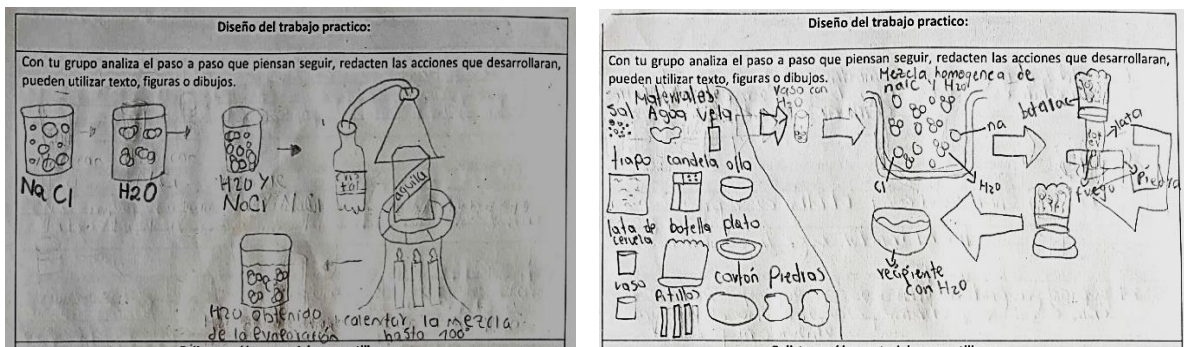 Diseño del trabajo practico:
Con tu grupo analiza el paso a paso que piensan seguir, redacten las acciones que desarrollaran,
pueden utilizar texto, figuras o dibujos.
Na Cl
H2O
H2O Y
NaCl
aquila
H2O obtenido
de la evaporación
calentar la mezcla
hasta 100°
Diseño del trabajo practico:
Con tu grupo analiza el paso a paso que piensan seguir, redacten las acciones que desarrollaran,
pueden utilizar texto, figuras o dibujos.
Materiales
Sal Agua vela
trapo candela olla
lata de botella plato
cerveza
vaso
Atillos
cartón Piedras
Vaso con
H2O
Mezcla homogenea de
naCl Y H2O
na
Cl
H2O
botella
lata
Piedra
Fuego
recipiente
con H2O